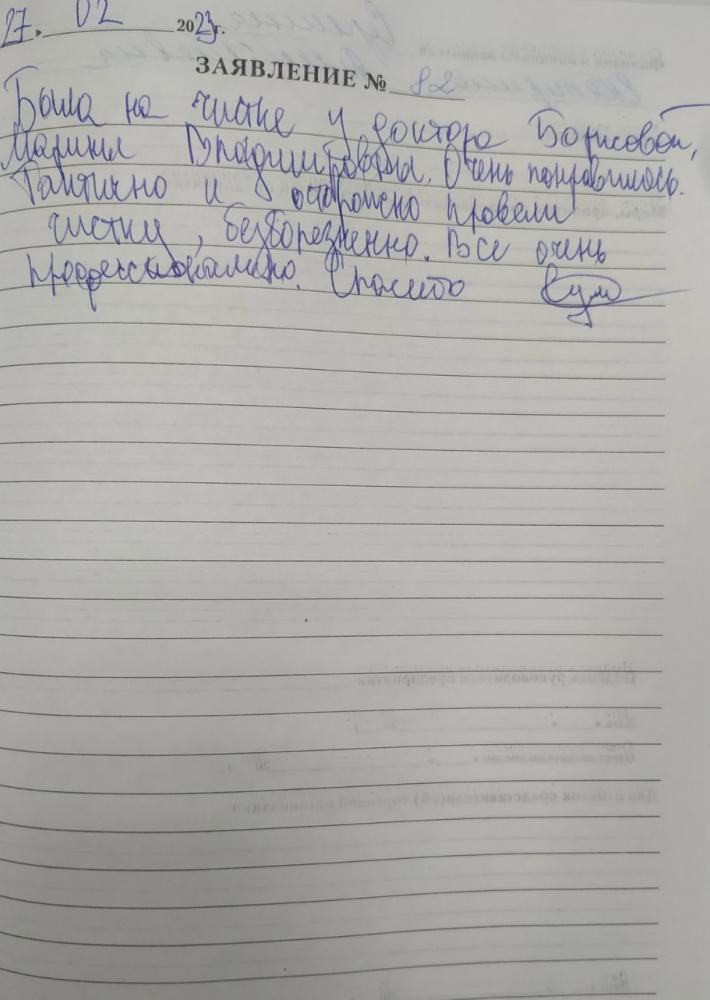 27. 02 2023г.
ЗАЯВЛЕНИЕ № 82
Была на чистке у доктора Борисовой,
Марины Владимировны. Очень понравилось.
Тактично и осторожно провели
чистку, безболезненно. Все очень
профессионально. Спасибо